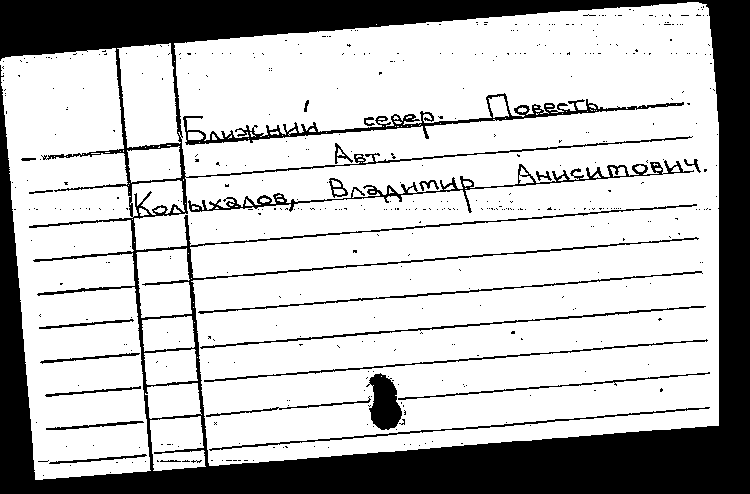 Ближний север. Повесть.
Авт.:
Колыхалов, Владимир Анисимович.